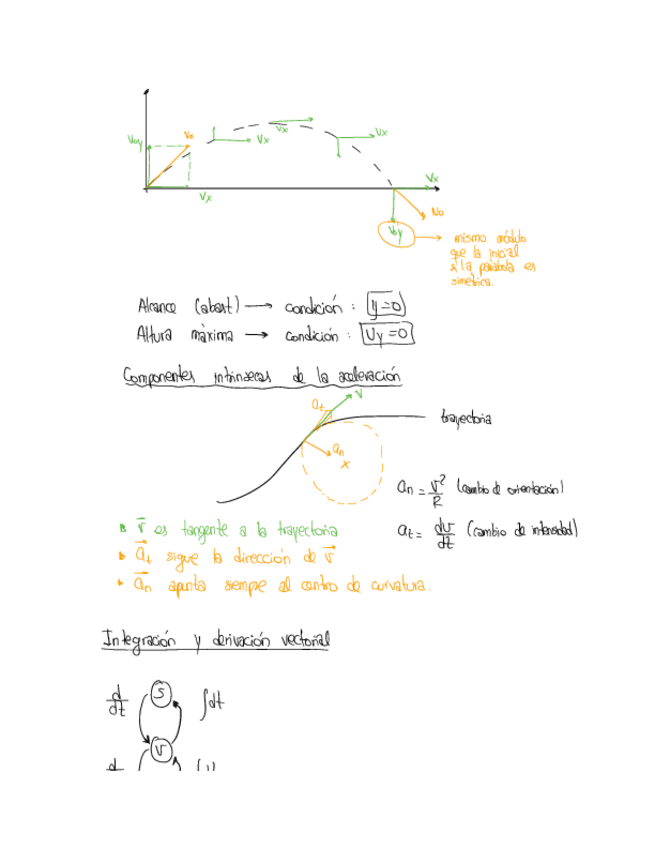 V₀y
V₀
Vx
Vx
Vx
Vx
Vx
V₀
V₀y
mismo módulo
que la inicial
si la parábola es
simétrica.
Alcance (abast) → condición : y=0
Altura màxima → condición : Vy=0
Componentes intrínsecas de la aceleración
at
v
trayectoria
an
x
an = v²/R (cambio de orientación)
at = dv/dt (cambio de intensidad)
v⃗ es tangente a la trayectoria
a⃗t sigue la dirección de v⃗
a⃗n apunta siempre al centro de curvatura.
Integración y derivación vectorial
d/dt S ∫dt
v
d